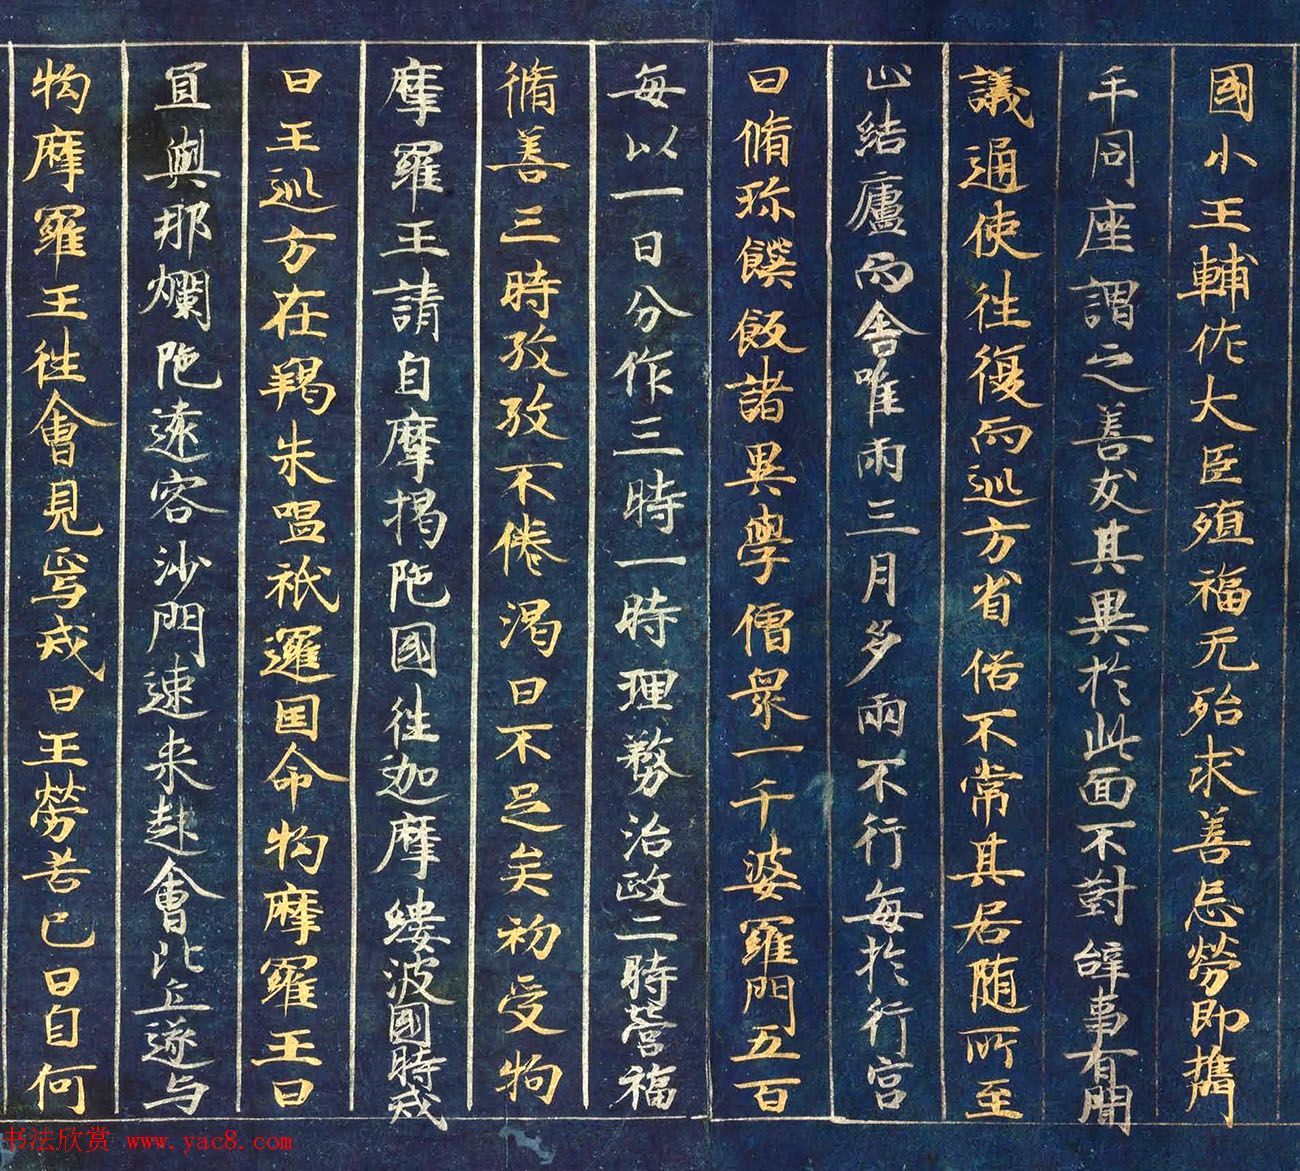 國小王輔佐大臣殖福无殆求善忘勞即攜
手同座謂之善友其異於此面不對辝事有聞
議通使往復而巡方省俗不常其居随所至
止結廬而舍唯雨三月多雨不行每於行宮
日脩珍饌飯諸異學僧衆一千婆羅門五百
每以一日分作三時一時理務治政二時營福
脩善三時孜孜不倦渴日不足矣初受拘
摩羅王請自摩揭陁國往迦摩縷波國時戒
日王巡方在羯朱嗢祇邏国命拘摩羅王曰
宜與那爛陁遠客沙門速来赴會比丘遂与
拘摩羅王往會見焉戒日王勞苦已曰自何
书法欣赏 www.yac8.com